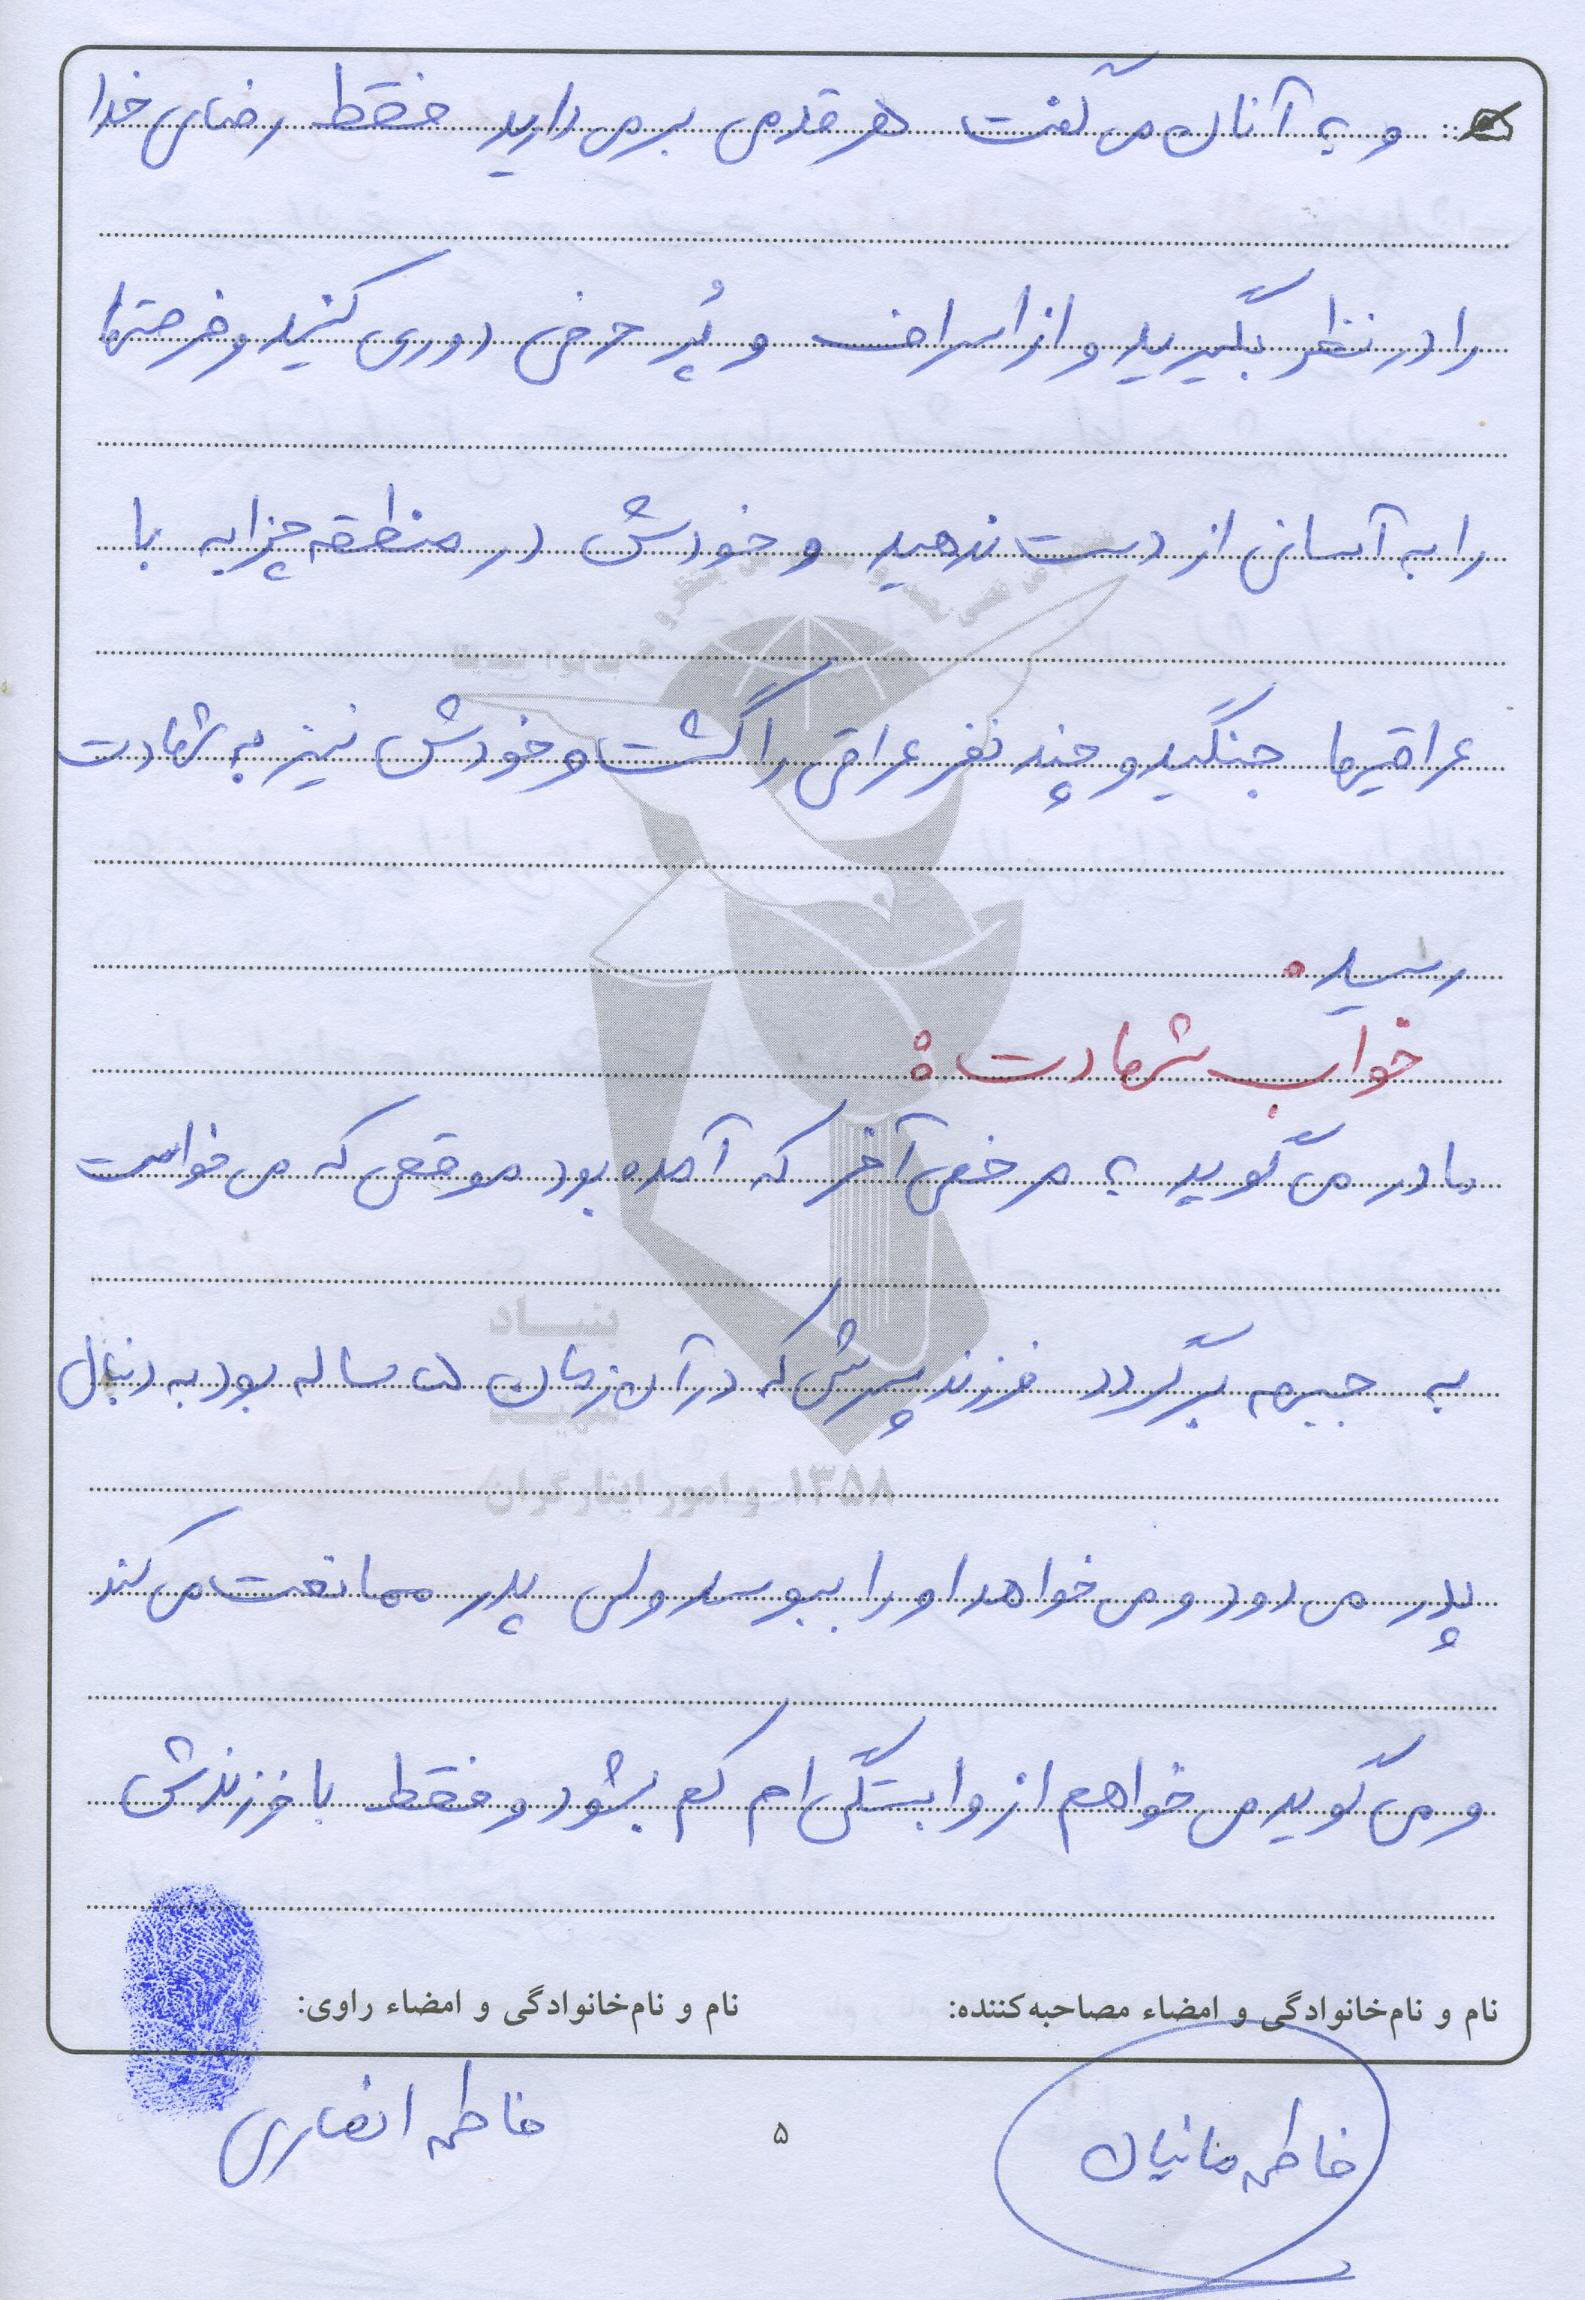 و به آنان می گفت هر قدمی برمی دارید فقط رضای خدا
را در نظر بگیرید و از اسراف و پُر حرفی دوری کنید و فرصتها
را به آسانی از دست ندهید و خودش در منطقه چزابه با
عراقیها جنگید و چند نفر عراقی را کشت و خودش نیز به شهادت
رسید.
خواب شهادت:
مادر می گوید: مرخصی آخر که آمده بود موقعی که می خواست
به جبهه برگردد فرزند پسرش که در آن زمان ۵ ساله بود به دنبال
پدر می دود و می خواهد او را ببوسد ولی پدر ممانعت می کند
و می گوید می خواهم از وابستگی ام کم بشود و فقط با فرزندش
نام و نام‌خانوادگی و امضاء مصاحبه‌کننده:
نام و نام‌خانوادگی و امضاء راوی:
فاطمه
فاطمه انصاری
۵
بنیاد
شهید
۱۳۵۸ و امور ایثارگران